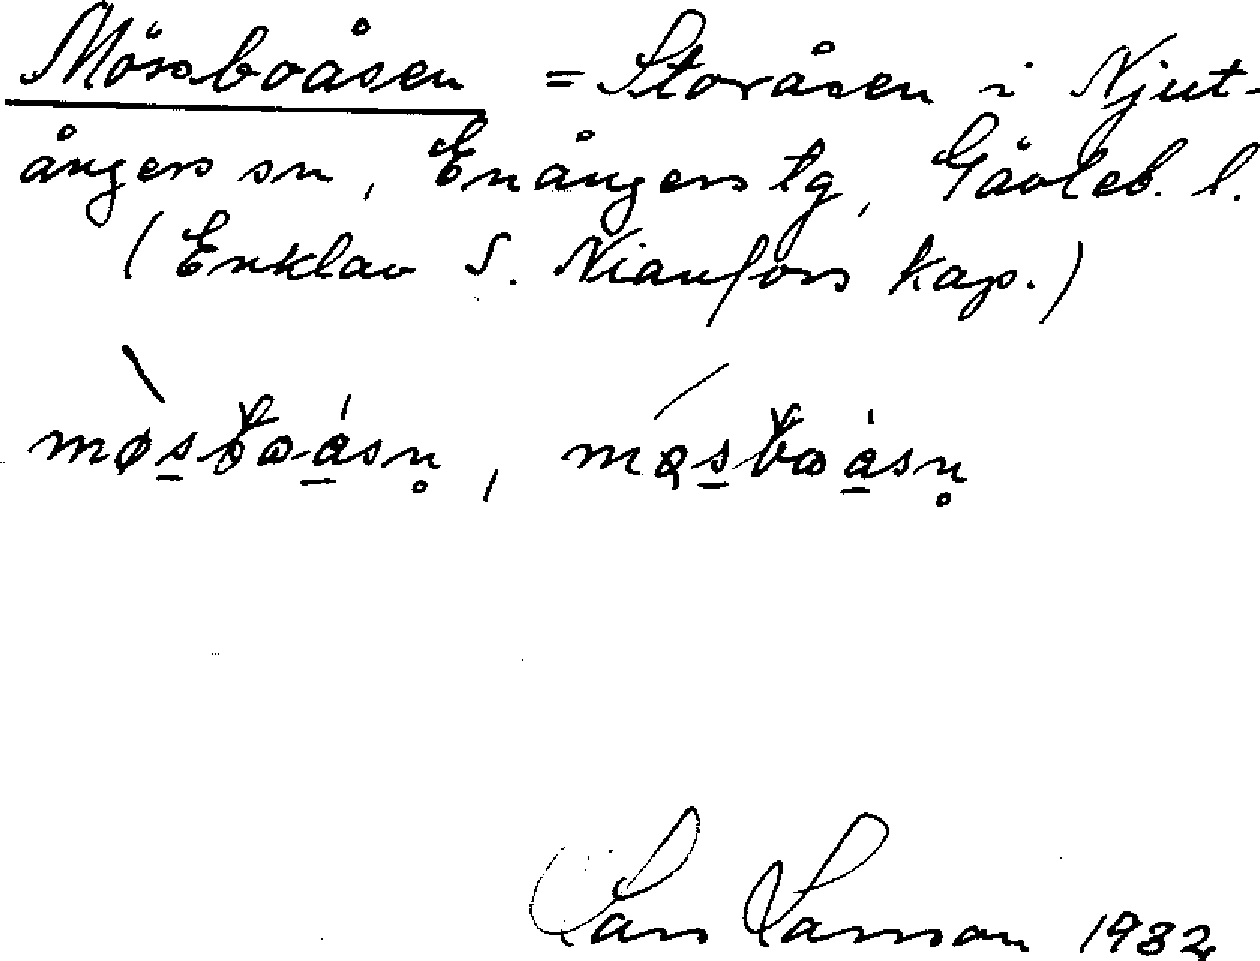 Mössboåsen = Storåsen i Njut-
ångers sn, Enångers tg, Gävleb. l.
(Enklav S. Nianfors kap.)
Lars Larsson 1932